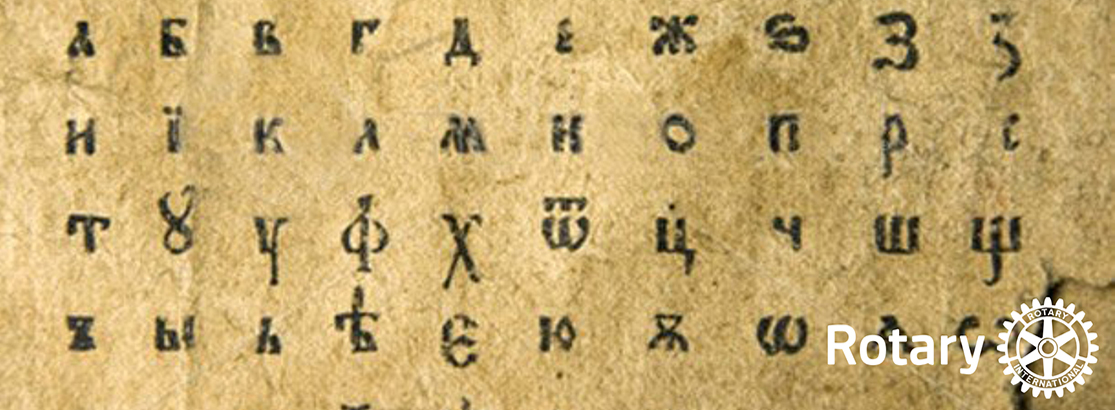 а б в г д є ж ѕ З з
и ї к л м н о п р с
т ꙋ ү ф х ѿ ц ч ш щ
ъ ы ь ѣ є ю ѫ ѡ
Rotary
ROTARY
INTERNATIONAL